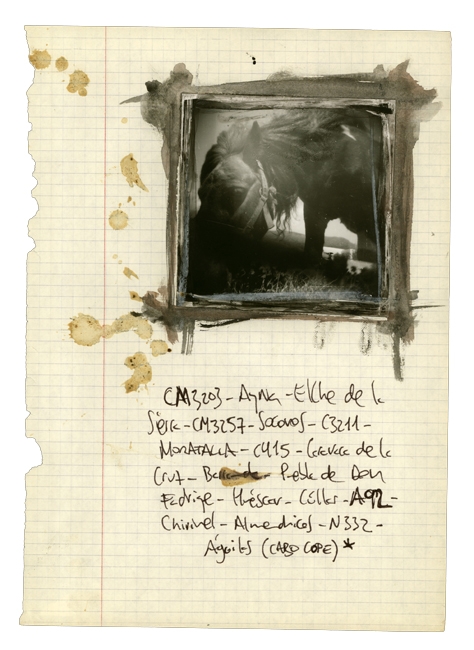 CM3203 - Ayna - Elche de la
Sierra - CM3257 - Socovos - C3211 -
MORATALLA - C415 - Caravaca de la
Cruz - Puebla de Don
Fadrique - Huéscar - Cúllar - A92 -
Chirivel - Almendricos - N332 -
Águilas (CABO COPE) *